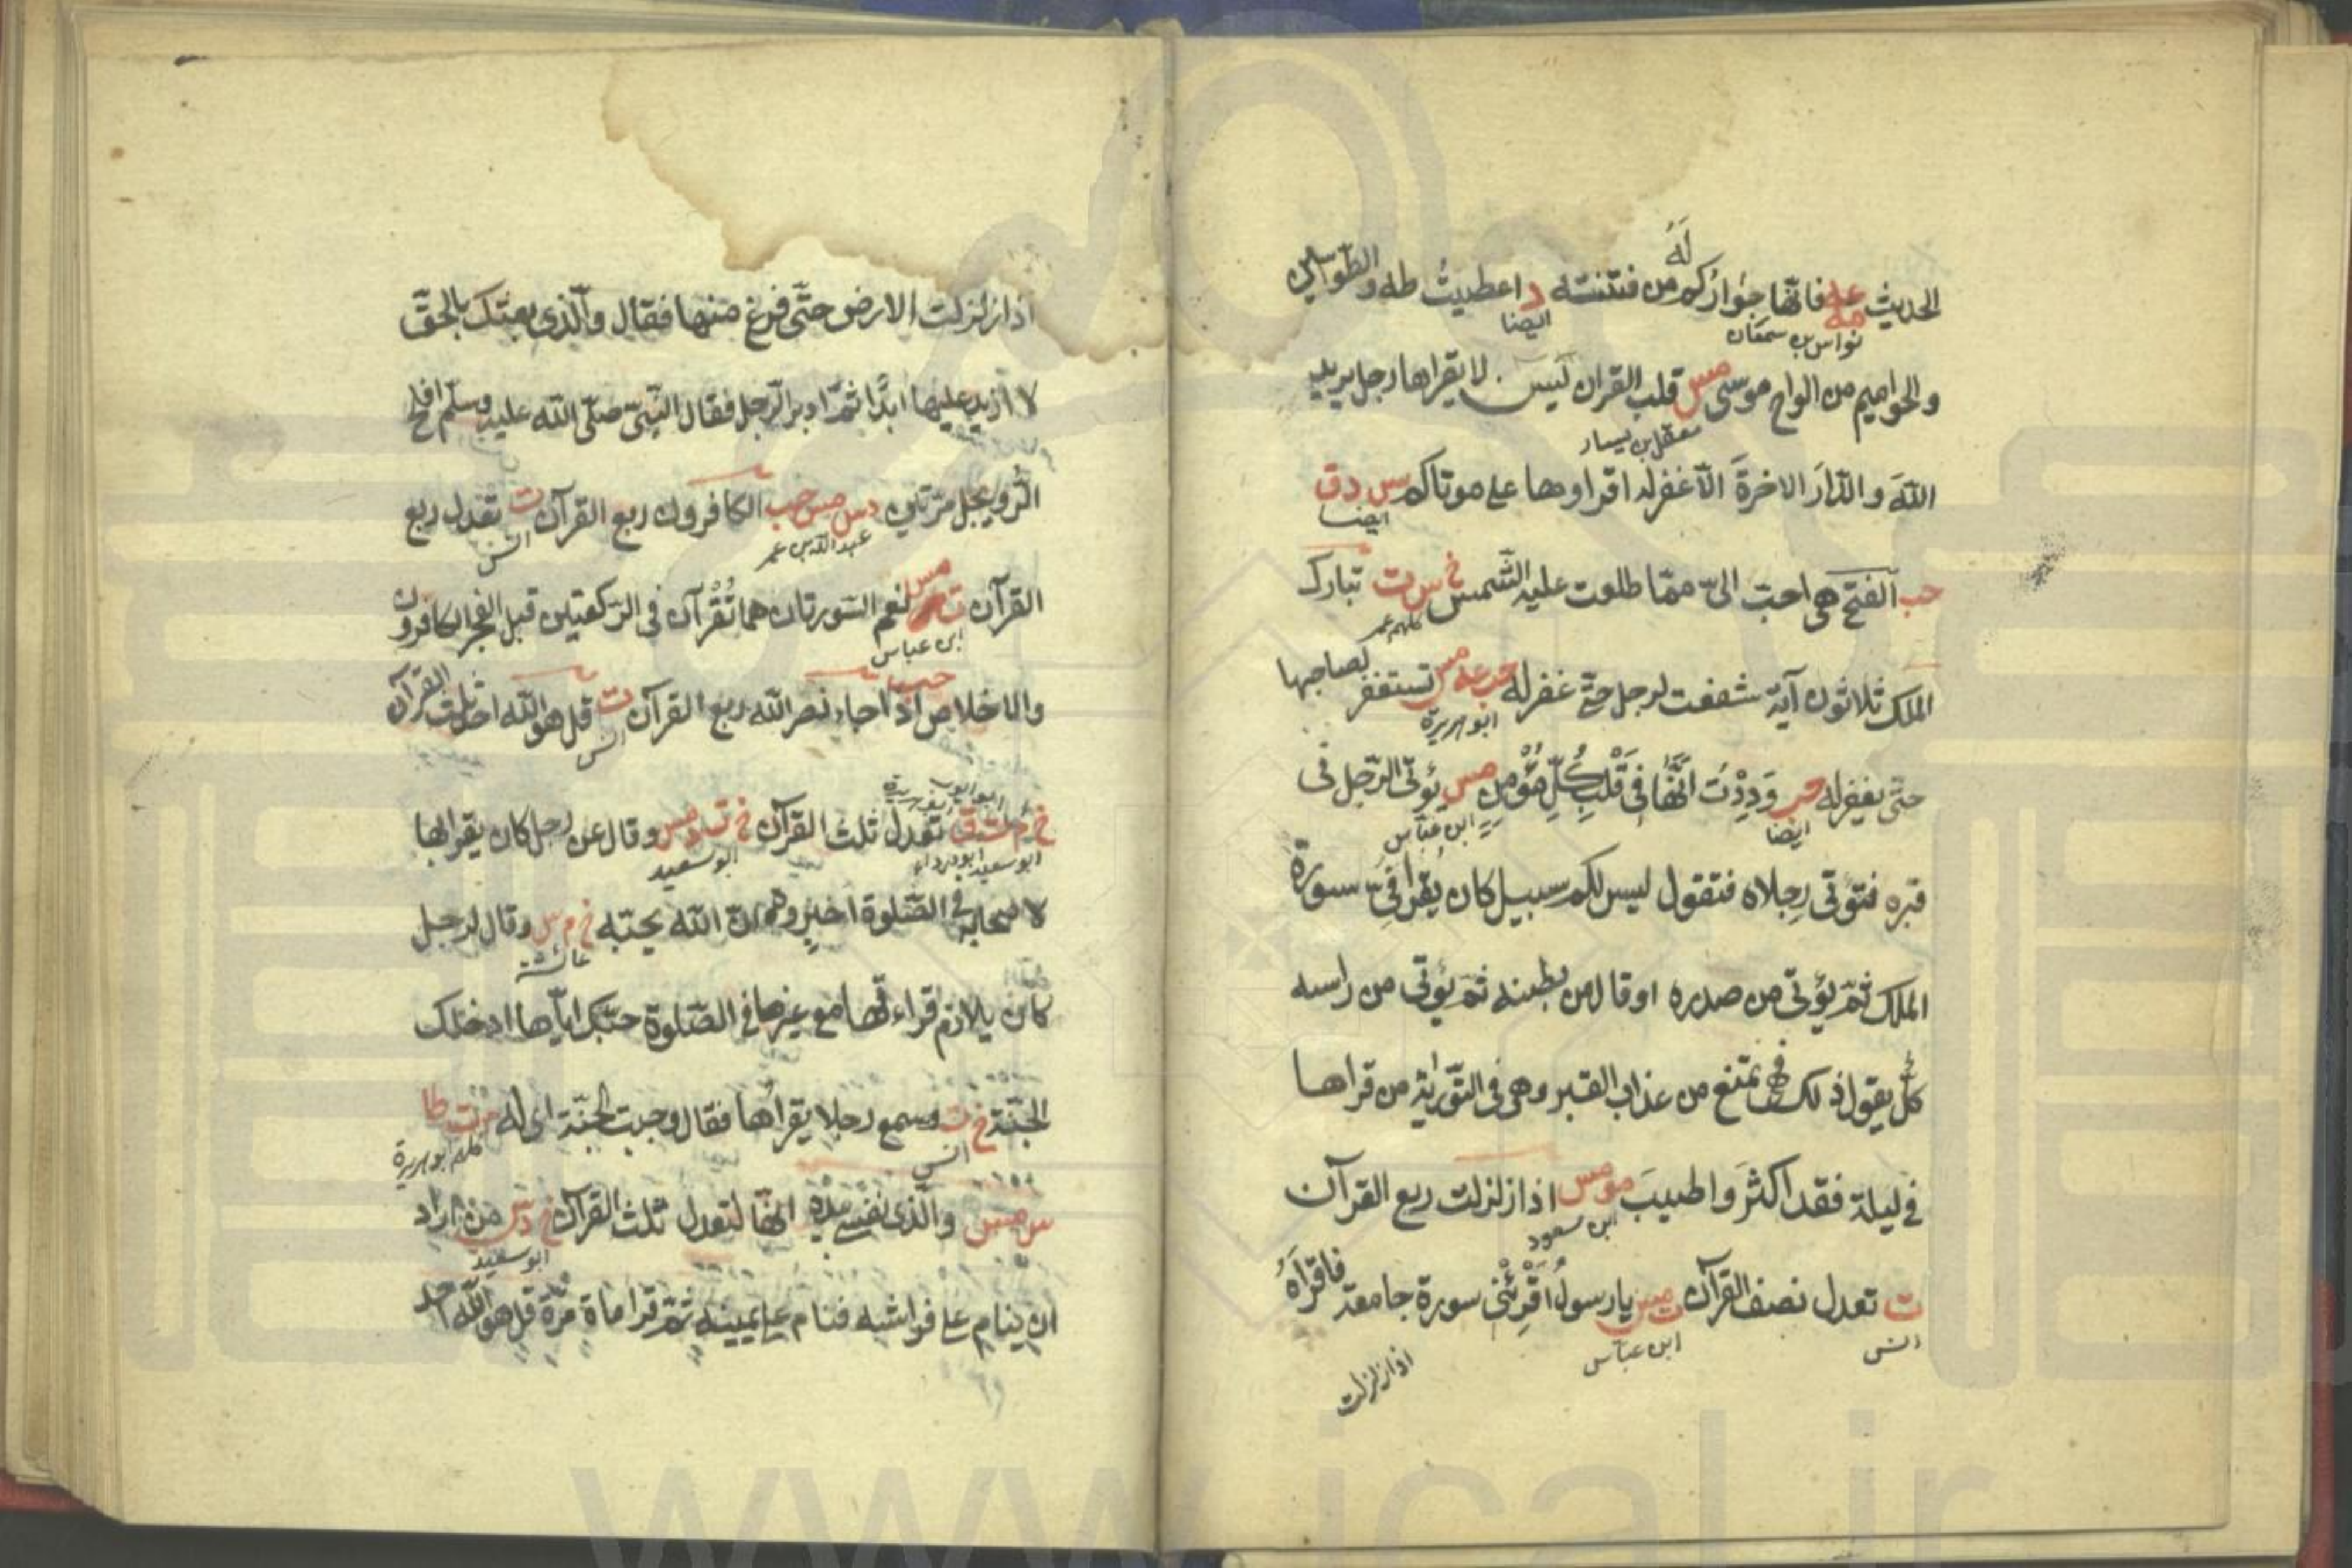 له
الحديث عه فانها جواركم من فتنته د اعطيت طه والطواسين
مه
نواس بن سمعان ايضا
والحواميم من الواح موسى مس قلب القران يس لا يقراها رجل يريد
معقل بن يسار
الله والدار الاخرة الا غفرله اقراوها على موتاكم س د ق
ايضا
حب الفتح هى احب الى مما طلعت عليه الشمس خ س ت تبارك
كلهم عمر
الملك ثلاثون آية شفعت لرجل حتى غفر له حب عه مس تستغفر لصاحبها
ابو هريرة
حتى يغفر له حب وَدِدْتُ انَّهَا فِى قَلْبِ كُلِّ مُؤْمِنٍ مس يؤتى الرجل فى
ايضا ابن عباس
قبره فتؤتى رجلاه فتقول ليس لكم سبيل كان يقرا فىّ سورة
الملك ثم يؤتى من صدره او قال من بطنه ثم يؤتى من راسه
كلٌّ يقول ذلك فهى تمنع من عذاب القبر وهى فى التورية من قراها
فى ليلة فقد اكثرَ واطيبَ مو مس اذا زلزلت ربع القرآن
ابن مسعود
ت تعدل نصف القرآن ت مس يا رسولُ اَقْرِئْنى سورة جامعة فاقراَهُ
انس ابن عباس
اذا زلزلت
اذا زلزلت الارض حتى فرغ منها فقال والذى بعثك بالحق
لا ازيد عليها ابدًا ثم ادبر الرجل فقال النبى صلى الله عليه وسلم افلح
الرويجل مرتين د س مس حب الكافرون ربع القرآن ت تعدل ربع
عبد الله بن عمر انس
القرآن ت مس نعم السورتان هما تُقْرآن فى الركعتين قبل الفجر الكافرون
ابن عباس
والاخلاص حب اذا جاء نصر الله ربع القرآن ت قل هو الله احد ثلث القرآن
انس
ابو ايوب
خ م ت ق تعدل ثلث القرآن خ ت د مس وقال عن رجل كان يقرا بها
ابو سعيد ابو درداء ابو سعيد
لاصحابه فى الصلوة اخبروه ان الله يحبه خ م س وقال لرجل
عائشة
كان يلازم قراءتها مع غيرها فى الصلوة حبك اياها ادخلك
الجنة خ ت وسمع رجلا يقرأها فقال وجبت الجنة اى له مس ت طا
انس كلهم ابو هريرة
س مس والذى نفسى بيده انها لتعدل ثلث القرآن خ د س من اراد
ابو سعيد
ان ينام على فراشه فنام على يمينه ثم قرا ماة مرة قل هو الله احد
www.ical.ir